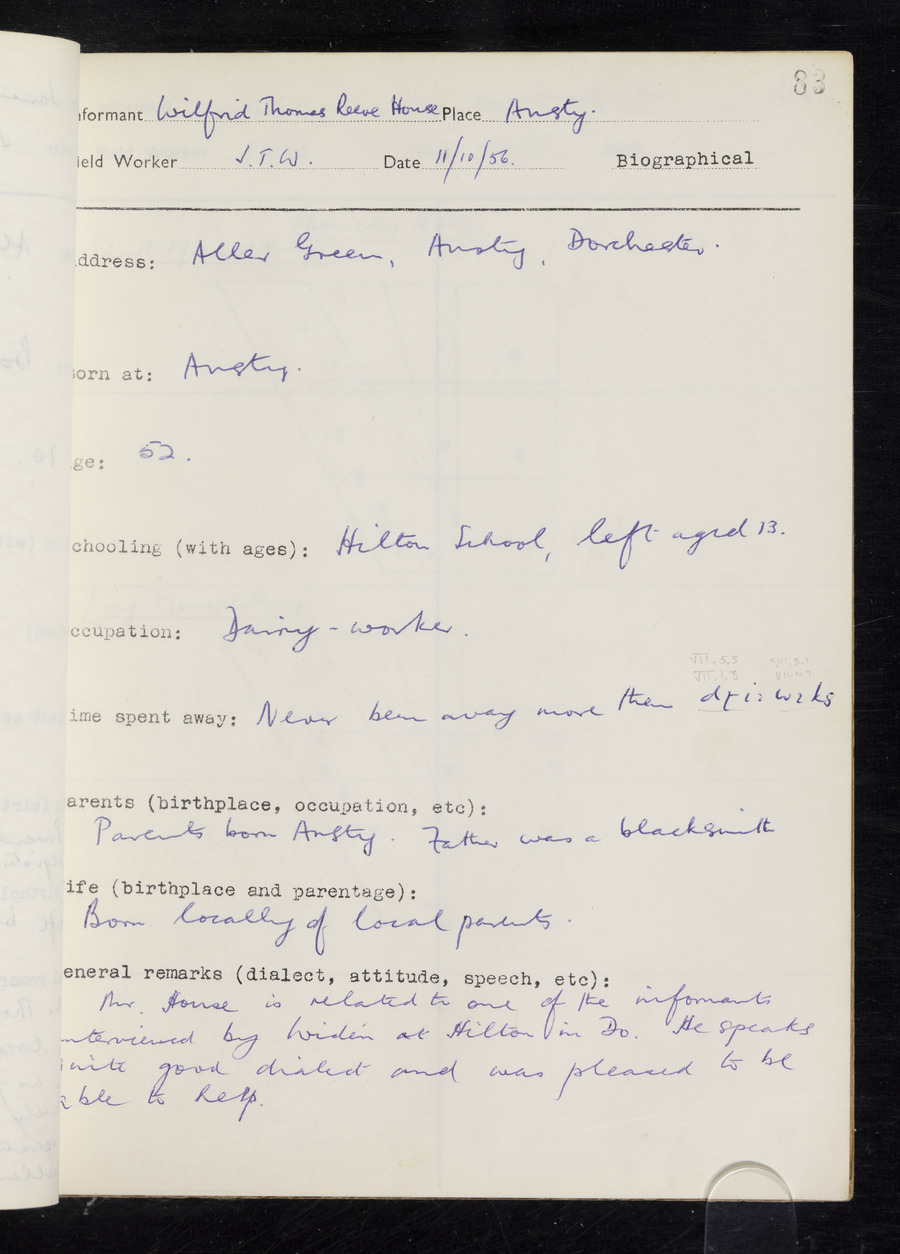 83
nformant Wilfrid Thomas Reeve House Place Ansty.
ield Worker J.T.W. Date 11/10/56. Biographical
ddress: Aller Green, Ansty, Dorchester.
orn at: Ansty.
ge: 52.
chooling (with ages): Hilton School, left aged 13.
ccupation: Dairy-worker.
VII.5.5
VII.1.3
ime spent away: Never been away more than
arents (birthplace, occupation, etc):
Parents born Ansty. Father was a blacksmith
ife (birthplace and parentage):
Born locally of local parents.
eneral remarks (dialect, attitude, speech, etc):
Mr. House is related to one of the informants
nterviewed by Widén at Hilton in Do. He speaks
uite good dialect and was pleased to be
able to help.